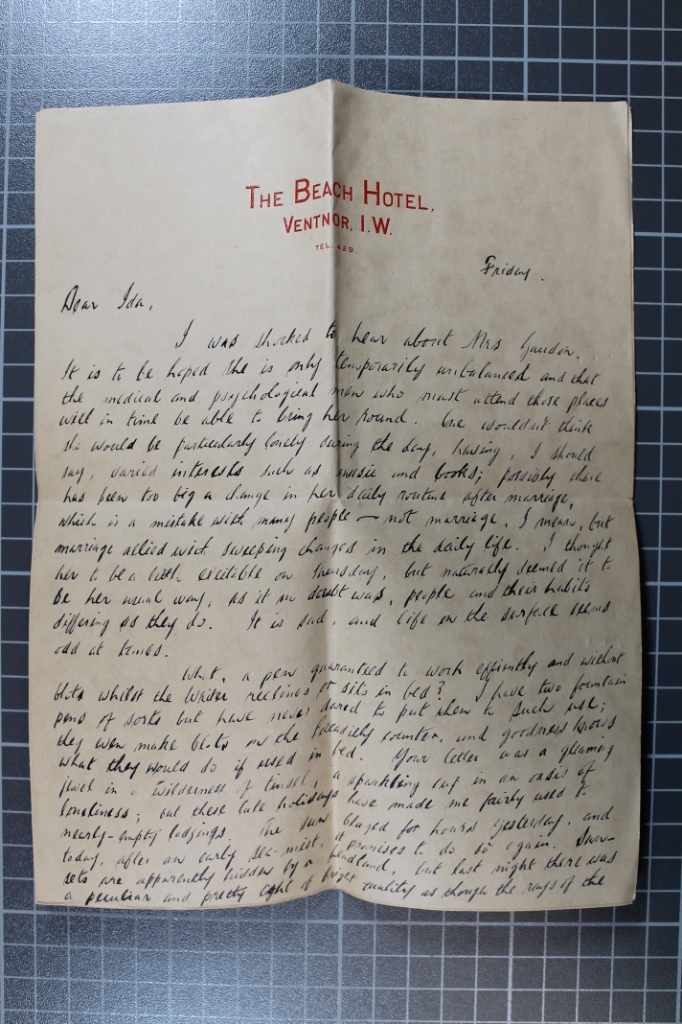 THE BEACH HOTEL,
VENTNOR, I.W.
TEL. 429.
Friday.
Dear Ida,
I was shocked to hear about Mrs
It is to be hoped she is only temporarily unbalanced and that
the medical and psychological men who must attend those places
will in time be able to bring her round. One wouldn't think
she would be particularly lonely during the day, having, I should
say, varied interests such as music and books; possibly there
has been too big a change in her daily routine after marriage,
which is a mistake with many people — not marriage, I mean, but
marriage allied with sweeping changes in the daily life. I thought
her to be a little excitable on Thursday, but naturally deemed it to
be her usual way, as it no doubt was, people and their habits
differing as they do. It is sad, and life on the surface seems
odd at times.
What, a pen guaranteed to work efficiently and without
blots whilst the writer reclines or sits in bed? I have two fountain
pens of sorts but have never dared to put them to such use;
they even make blots on the counter, and goodness knows
what they would do if used in bed. Your letter was a gleaming
jewel in a wilderness of tinsel, a sparkling cup in an oasis of
loneliness; but these late holidays have made me fairly used to
nearly-empty lodgings. The sun blazed for hours yesterday, and
today, after an early sea-mist, it promises to do so again. Sun-
sets are apparently hidden by a headland, but last night there was
a peculiar and pretty light of bright quality as though the rays of the